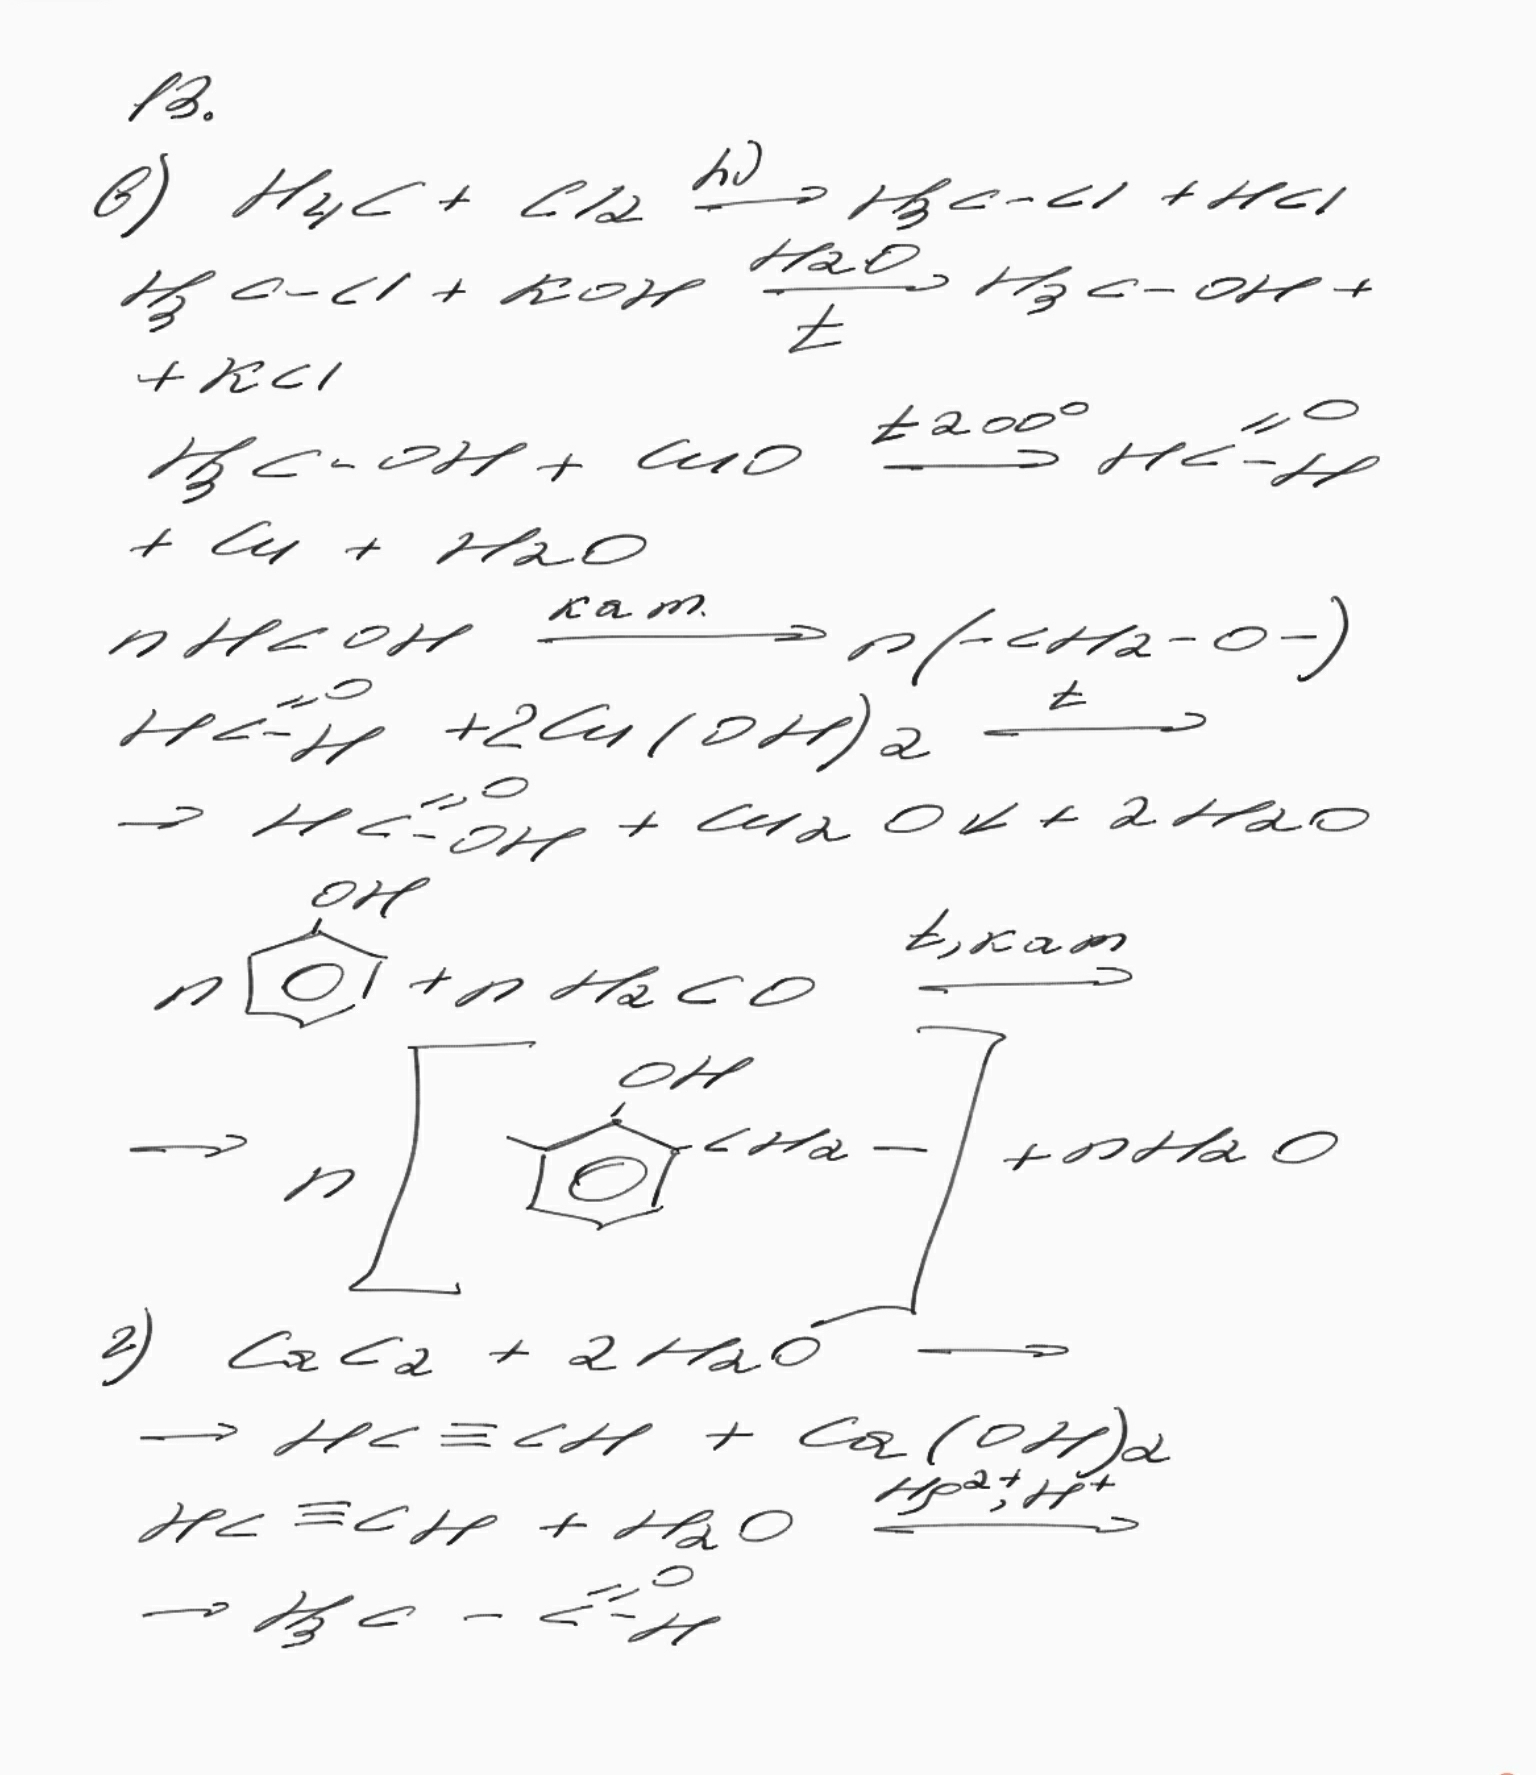 13.
в) H4C + Cl2 hν→ H3C-Cl + HCl
H3C-Cl + KOH H2O→t H3C-OH +
+ KCl
H3C-OH + CuO t200°→ HC=O-H
+ Cu + H2O
nHCOH кат.→ n(-CH2-O-)
HC=O-H +2Cu(OH)2 t→
→ HC=O-OH + Cu2O↓ + 2H2O
OH
n + nH2CO t,кат→
OH
→ n [ CH2- ] + nH2O
г) CaC2 + 2H2O →
→ HC≡CH + Ca(OH)2
HC≡CH + H2O Hg2+, H+→
→ H3C - C=O-H